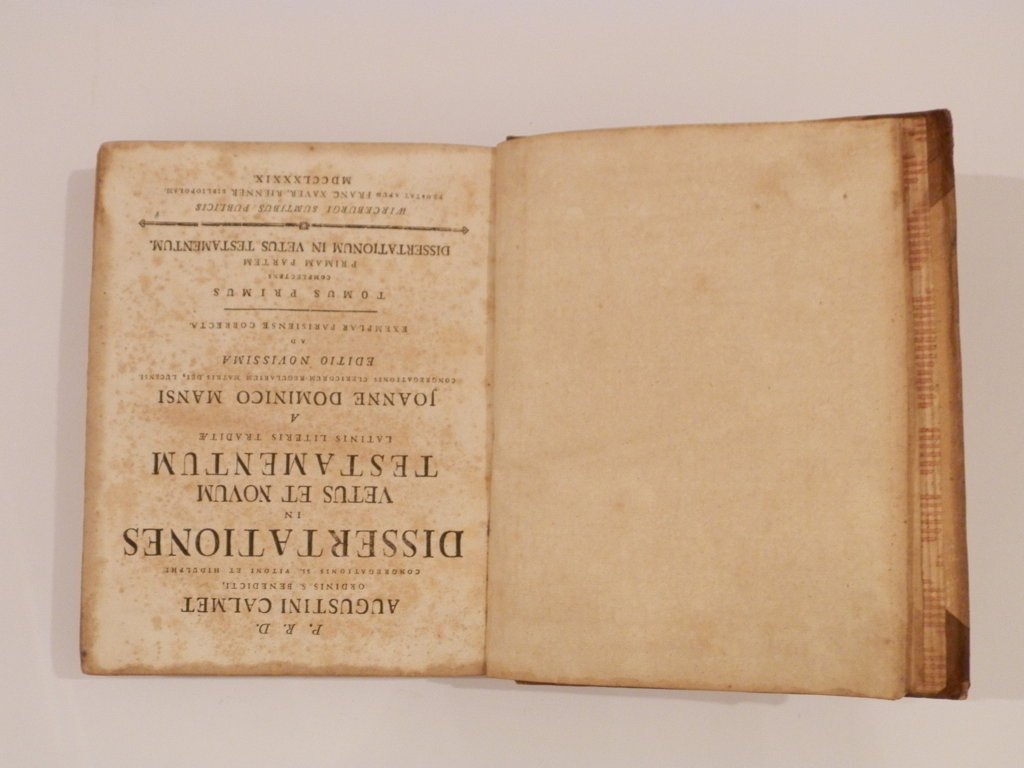 P. R. D.
AUGUSTINI CALMET
ORDINIS S. BENEDICTI,
CONGREGATIONIS SS. VITONI ET HIDULPHI
DISSERTATIONES
IN
VETUS ET NOVUM
TESTAMENTUM
LATINIS LITERIS TRADITÆ
A
JOANNE DOMINICO MANSI
CONGREGATIONIS CLERICORUM REGULARIUM MATRIS DEI, LUCENSI.
EDITIO NOVISSIMA
AD
EXEMPLAR PARISIENSE CORRECTA.
TOMUS PRIMUS
COMPLECTENS
PRIMAM PARTEM
DISSERTATIONUM IN VETUS TESTAMENTUM.
WIRCEBURGI SUMTIBUS PUBLICIS
PROSTAT APUD FRANC. XAVER. RIENNER, BIBLIOPOLAM.
MDCCLXXXIX.